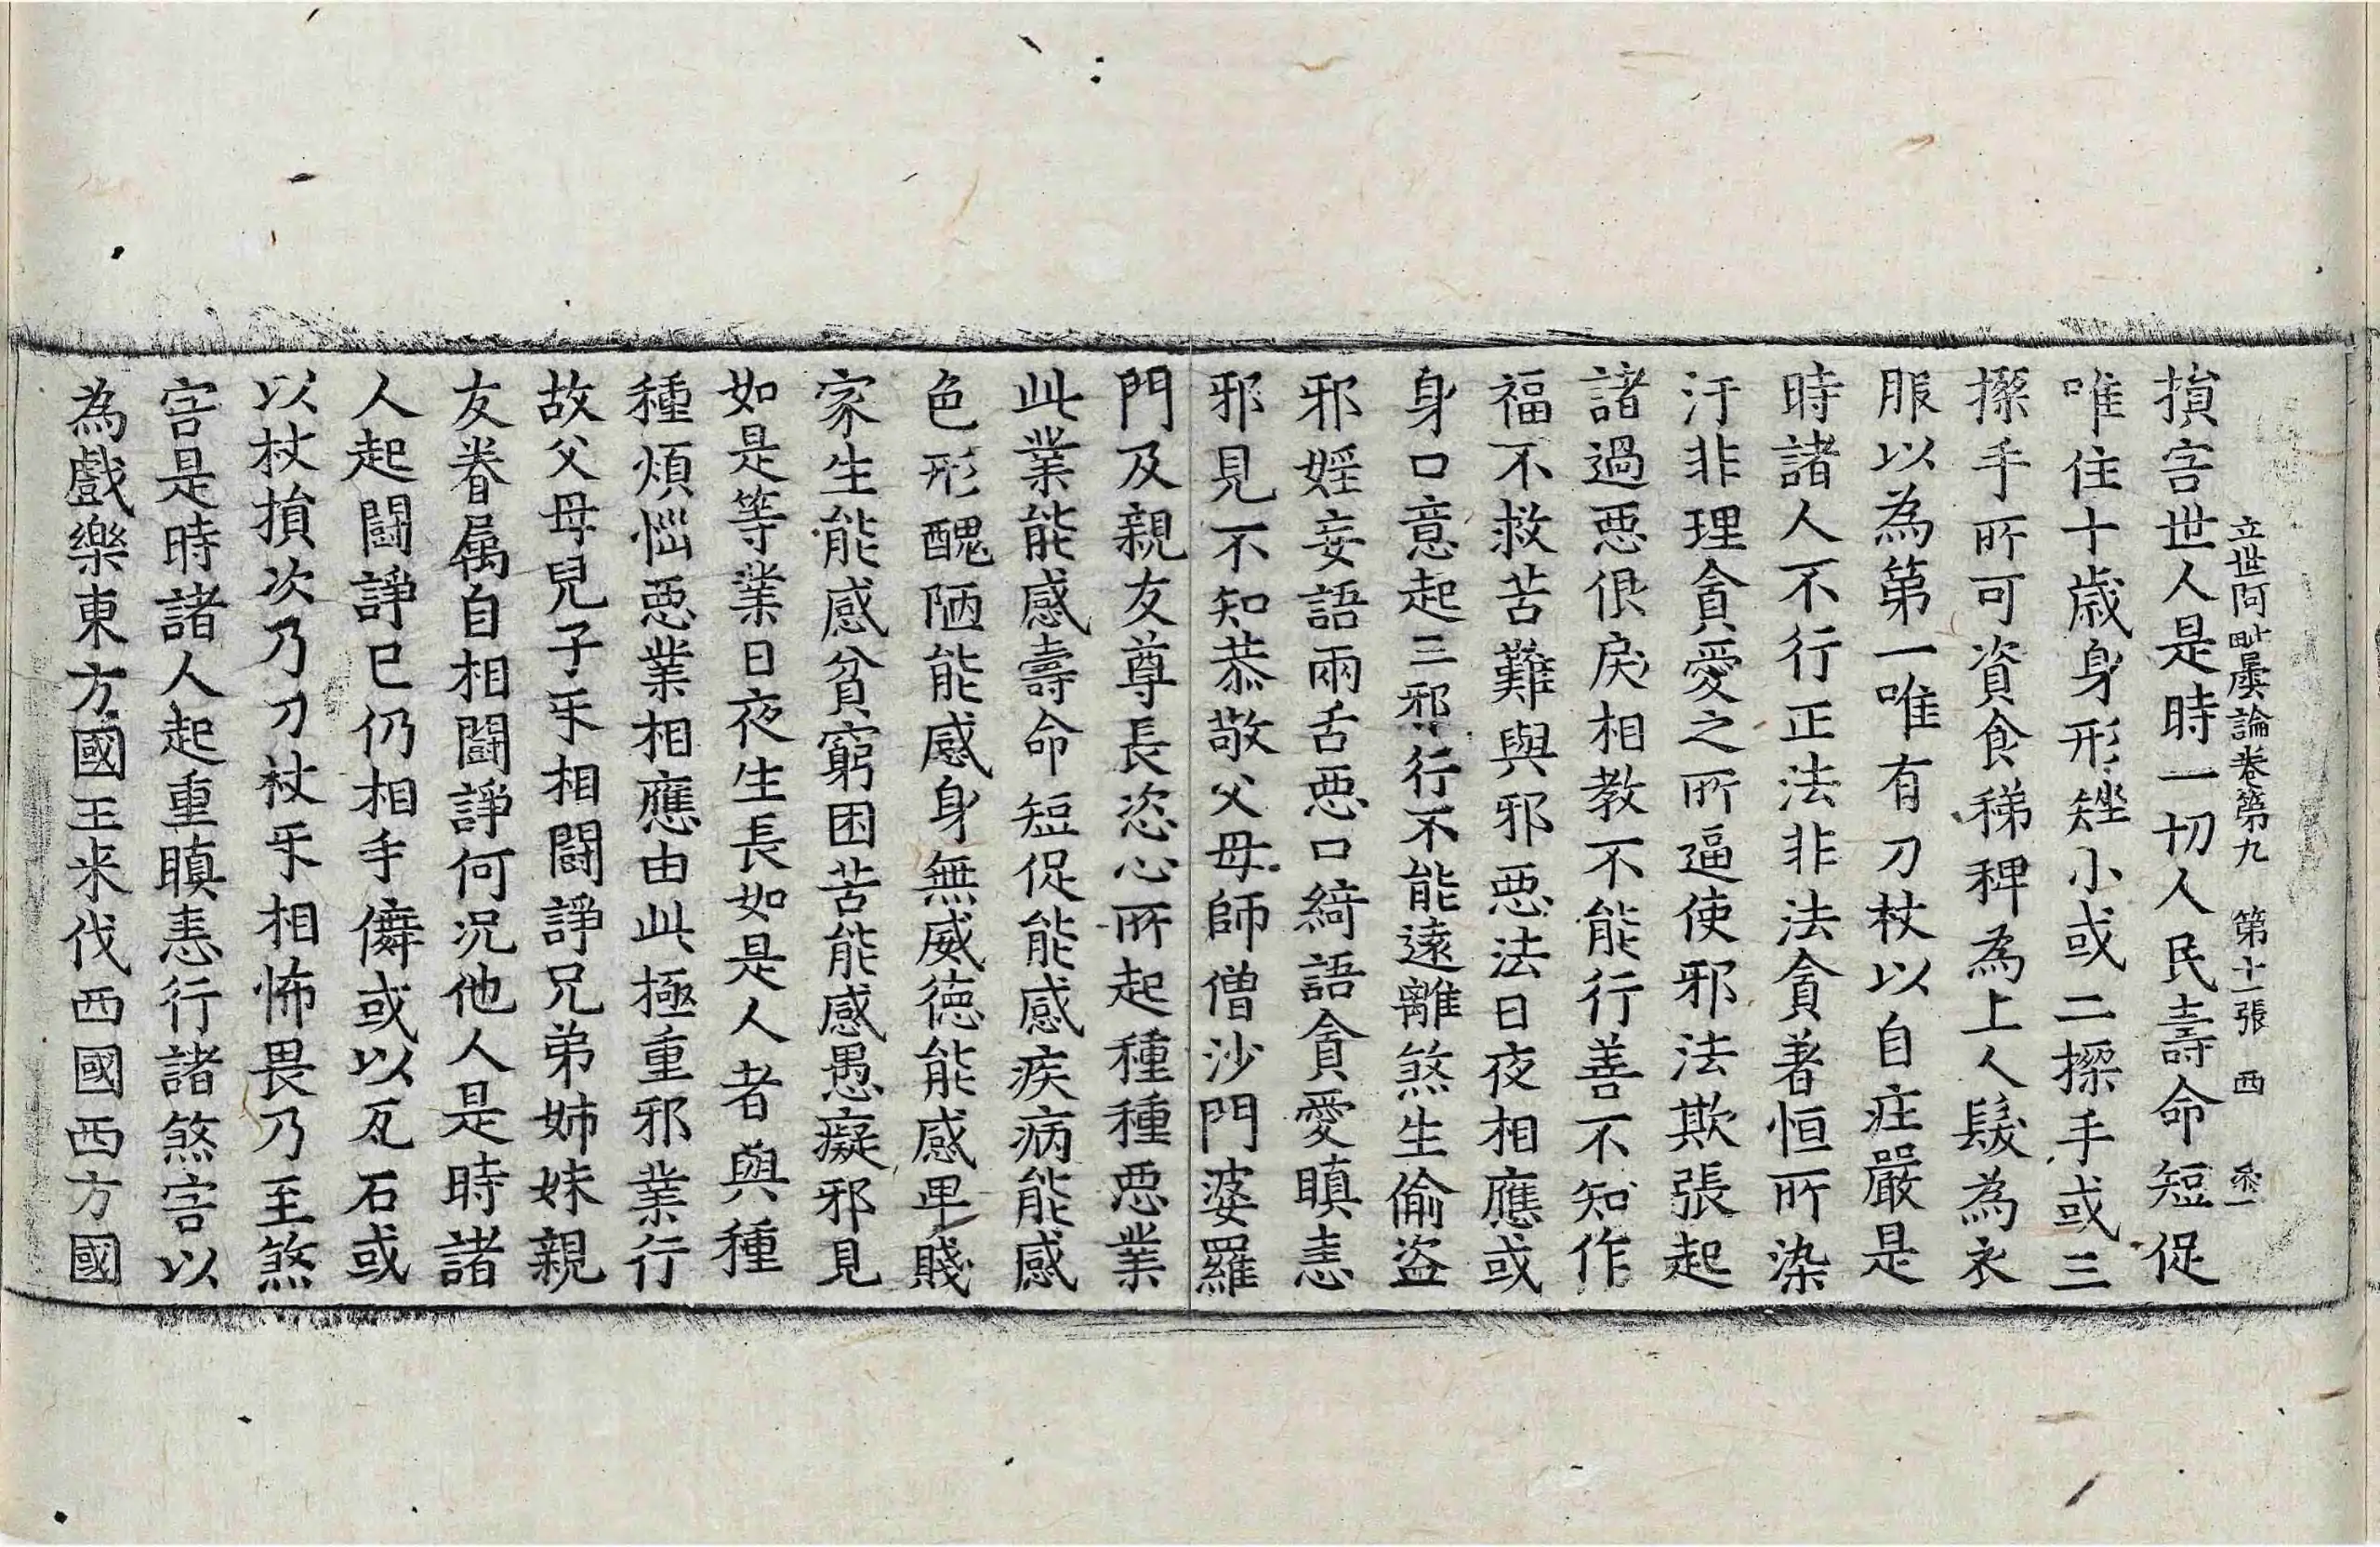 立世阿毗曇論卷第九　第十一張　西
損害世人是時一切人民壽命短促
唯住十歳身形矬小或二搩手或三
搩手所可資食稊稗為上人髮為衣
服以為第一唯有刀杖以自莊嚴是
時諸人不行正法非法貪著恒所染
汙非理貪愛之所逼使邪法欺張起
諸過惡佷戾相教不能行善不知作
福不救苦難與邪惡法日夜相應或
身口意起三邪行不能遠離煞生偷盗
邪婬妄語兩舌惡口綺語貪愛瞋恚
邪見不知恭敬父母師僧沙門婆羅
門及親友尊長恣心所起種種惡業
此業能感壽命短促能感疾病能感
色形醜陋能感身無威徳能感卑賤
家生能感貧窮困苦能感愚癡邪見
如是等業日夜生長如是人者與種
種煩惱惡業相應由此極重邪業行
故父母兒子㸦相鬪諍兄弟姉妹親
友眷属自相鬪諍何况他人是時諸
人起鬪諍已仍相手僻或以瓦石或
以杖損次乃刀杖㸦相怖畏乃至煞
害是時諸人起重瞋恚行諸煞害以
為戲樂東方國王来伐西國西方國